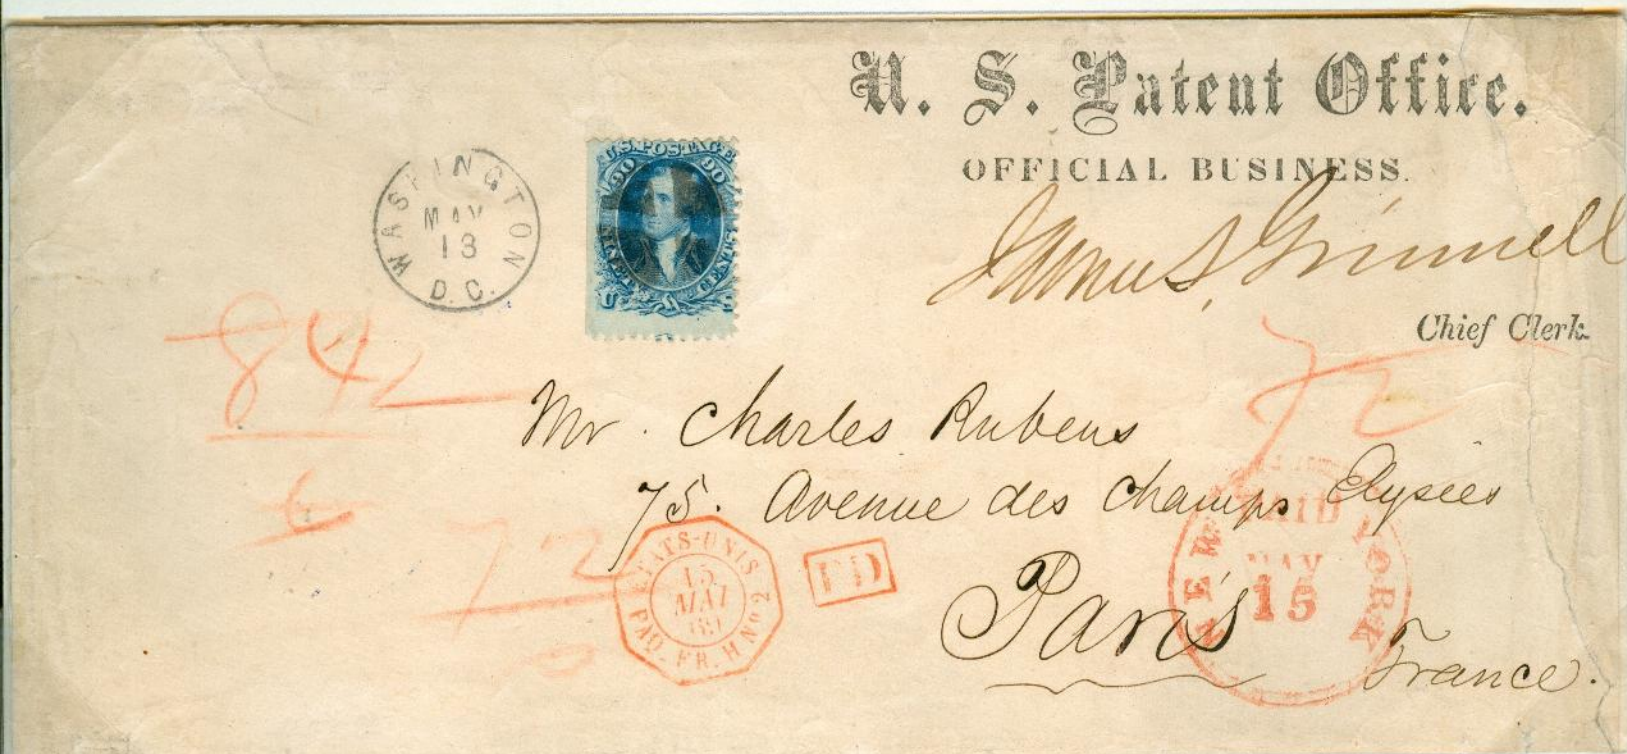 U. S. Patent Office.
OFFICIAL BUSINESS.
James S. Grinnell
Chief Clerk.
WASHINGTON
MAY
13
D. C.
U.S. POSTAGE
90 90
U S
72
Mr. Charles Rubens
75. Avenue des Champs Elysées
Paris
France.
84
6
72
ETATS-UNIS
15
MAI
69
PAQ. FR. H No 2
PD
NEW YORK
PAID
MAY
15